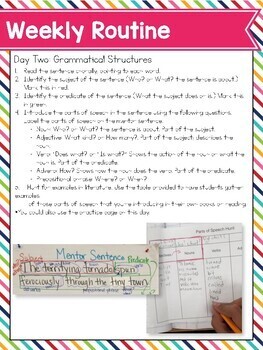 Weekly Routine
Day Two: Grammatical Structures
1. Read the sentence chorally, pointing to each word.
2. Identify the subject of the sentence (Who? or What? the sentence is about.)
Mark this in red.
3. Identify the predicate of the sentence (What the subject does or is.) Mark this
in green.
4. Introduce the parts of speech in the sentence using the following questions.
Label the parts of speech on the mentor sentence.
- Noun- Who? or What? the sentence is about. Part of the subject.
- Adjective- What kind? or How many? Part of the subject; describes the
noun.
- Verb- "Does what?" or "Is what?" Shows the action of the noun or what the
noun is. Part of the predicate.
- Adverb- How? Shows how the noun does the verb. Part of the predicate.
- Prepositional phrase- Where? or When?
5. Hunt for examples in literature. Use the table provided to have students gather
examples
of those parts of speech that you're introducing in their own books or reading.
*You could also use the practice page on this day.
Mentor Sentence
Subject Predicate
The terrifying tornado spun
ferociously through the tiny town.
Parts of Speech Hunt